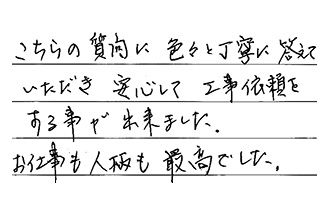 こちらの質問に色々と丁寧に答えて
いただき 安心して 工事依頼を
する事が出来ました。
お仕事も人柄も最高でした。